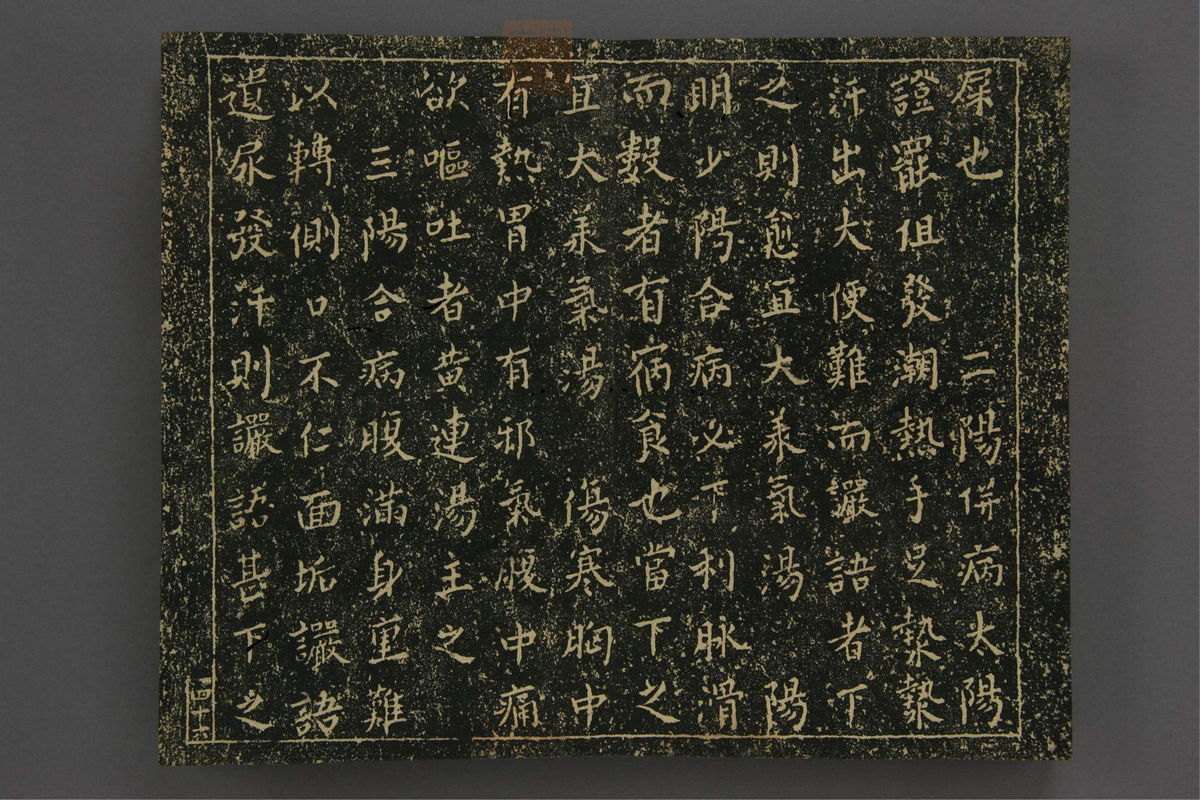 屎也　二陽併病太陽
證罷但發潮熱手足漐漐
汗出大便難而讝語者下
之則愈宜大承氣湯　陽
明少陽合病必下利脉滑
而數者有宿食也當下之
宜大承氣湯　傷寒胸中
有熱胃中有邪氣腹中痛
欲嘔吐者黃連湯主之
三陽合病腹滿身重難
以轉側口不仁面垢讝語
遺尿發汗則讝語甚下之
四十六